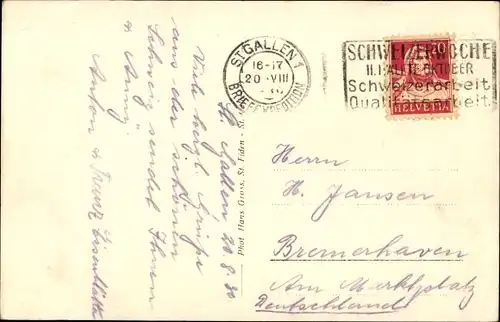 St. Gallen 20.8.30
Viele herzl. Grüße
aus der schönen
Schweiz sendet Ihnen
u. Anny
Anton u. Franz
Phot Hans Gross, St. Fiden - St.
ST. GALLEN 1
16-17
20.VIII
BRIEFEXPEDITION
SCHWEIZERWOCHE
II. HÄLFTE OKTOBER
Schweizerarbeit
Qualitätsarbeit
20
HELVETIA
Herrn
H. Jansen
Bremerhaven
Am Marktplatz
Deutschland